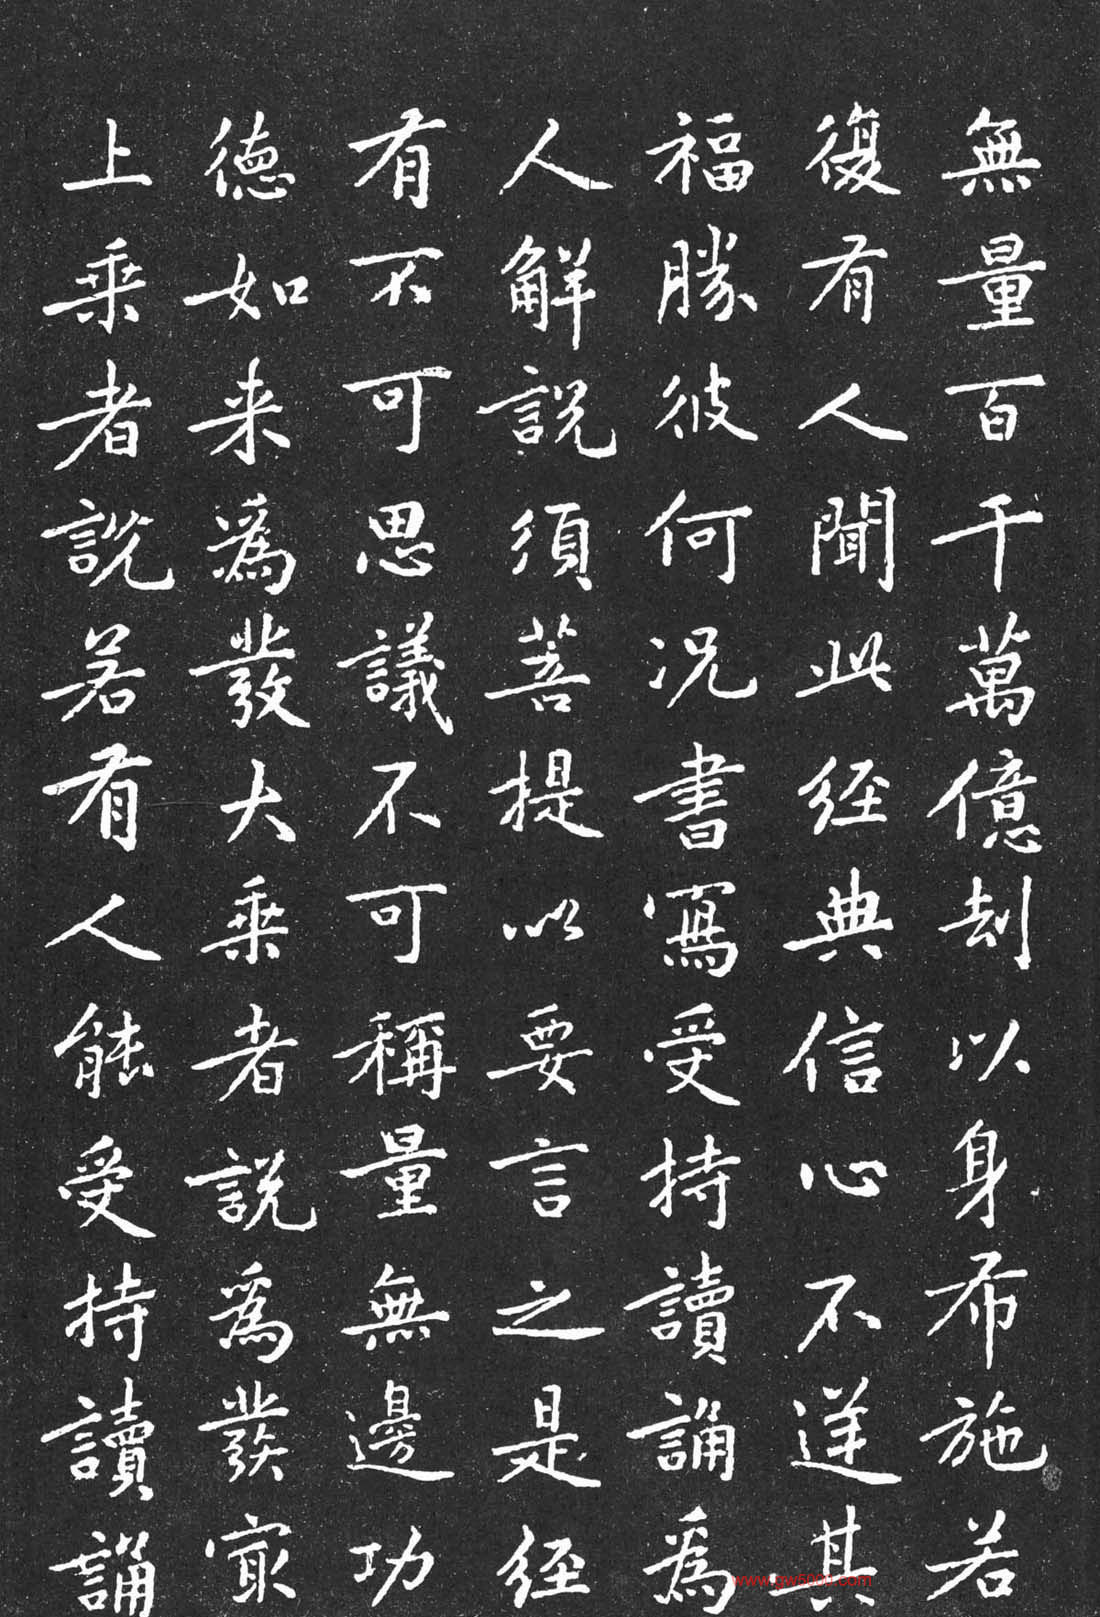 無量百千萬億刦以身布施若
復有人聞此経典信心不逆其
福勝彼何况書寫受持讀誦為
人解説須菩提以要言之是経
有不可思議不可稱量無邊功
德如来為發大乗者説為發㝡
上乗者説若有人能受持讀誦
www.gw5000.com